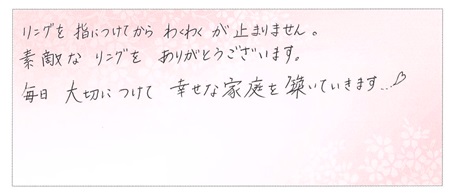 リングを 指につけてから わくわく が 止まりません。
素敵な リングを ありがとうございます。
毎日 大切につけて 幸せな家庭を築いていきます…♡